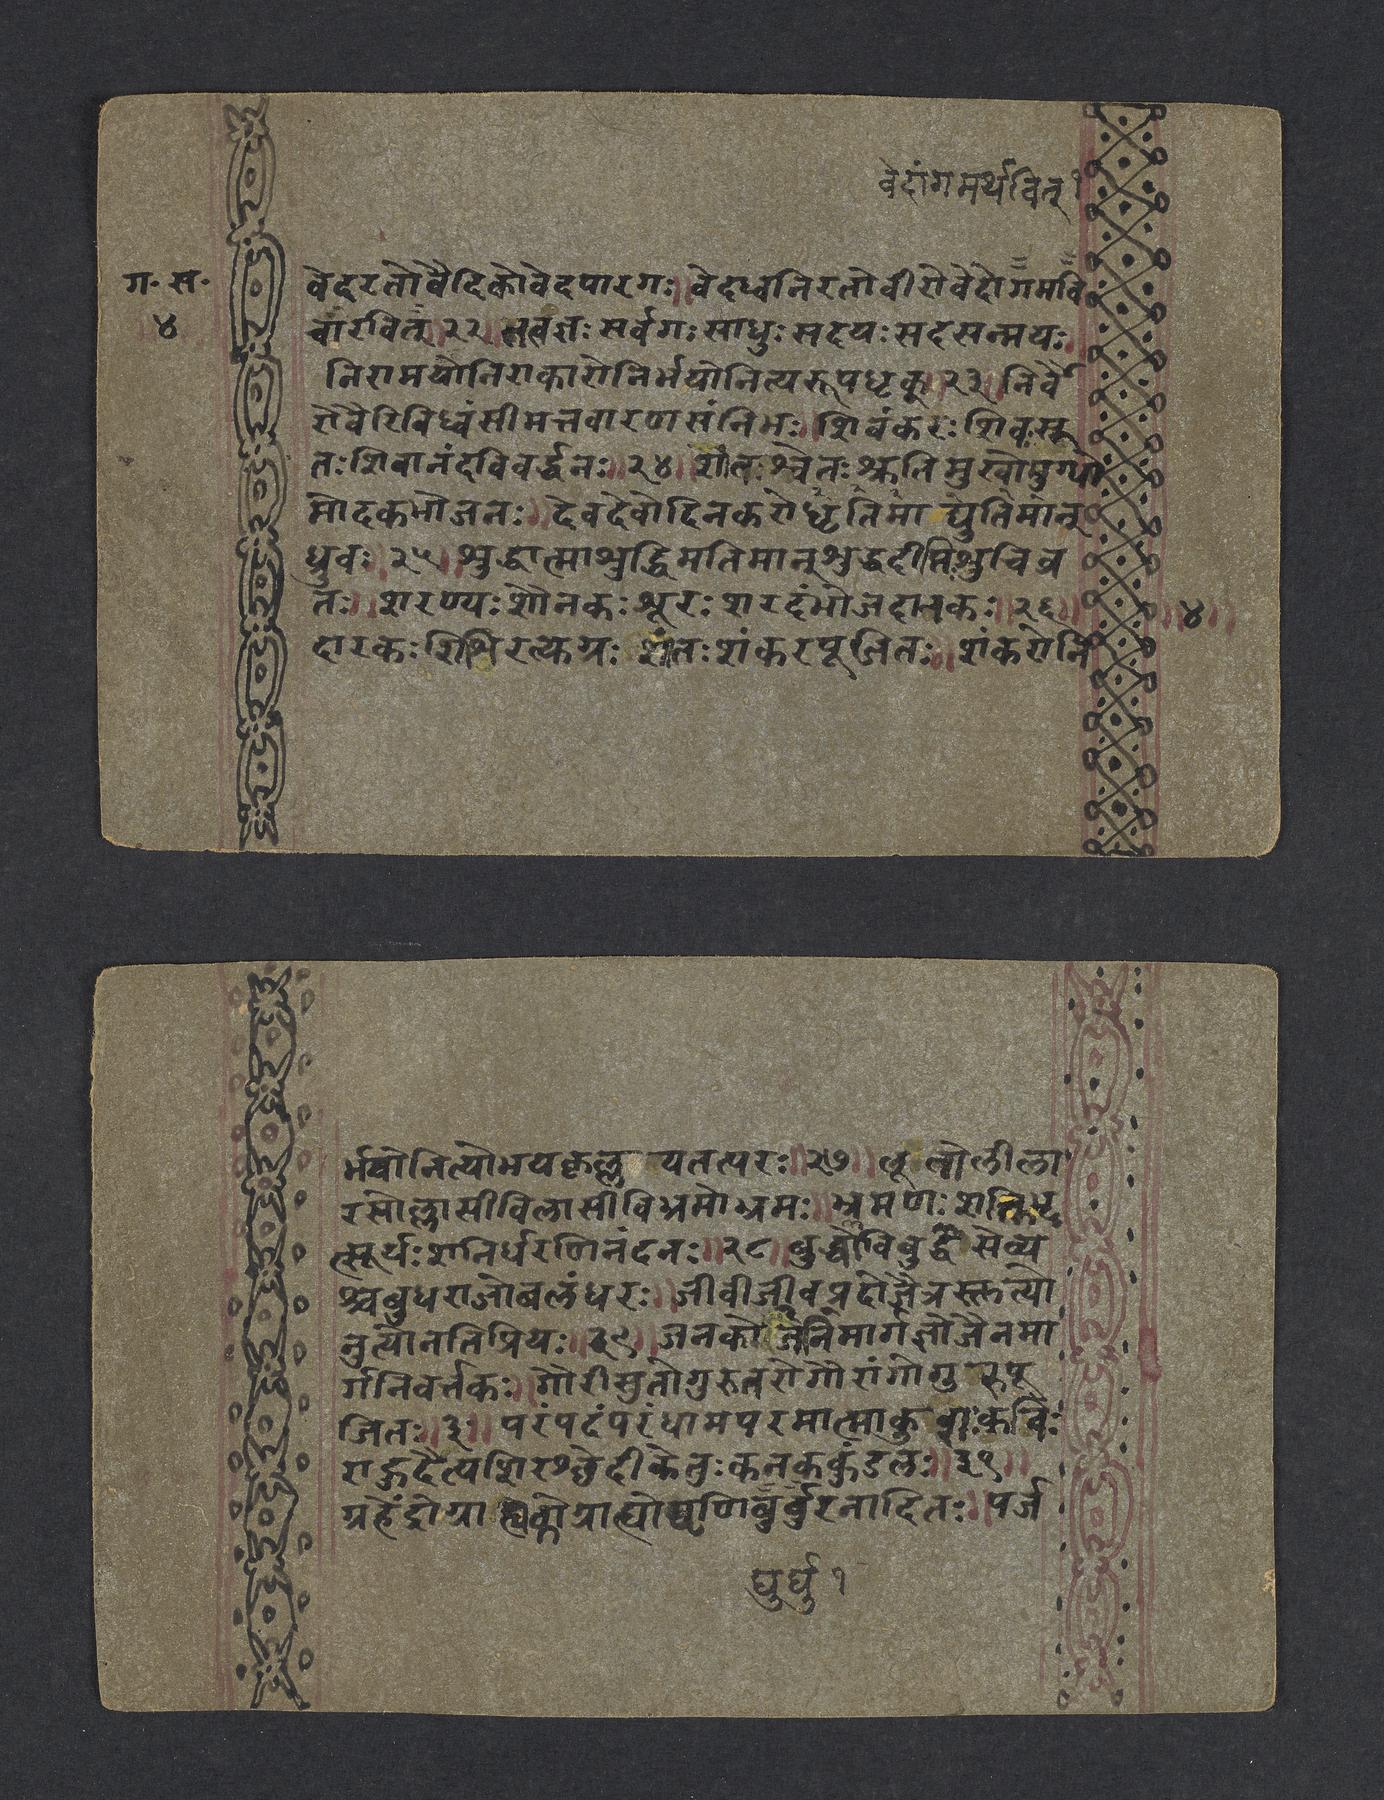 वेदांगमर्थवित् १
ग॰ स॰
४
वेदरतोवैदिकोवेदपारगः॥वेदध्वनिरतोवीरोवेदांगमवि
चारवित्॥२२॥तत्वज्ञः सर्वगः साधुः सदयः सदसन्मयः॥
निरामयोनिराकारोनिर्भयोनित्यरूपधृक्॥२३॥निर्वै
रोवैरिविध्वंसीमत्तवारणसंनिभः॥शिवंकरः शिवः
तः शिवानंदविवर्द्धनः॥२४॥
मोदकभोजनः॥देवदेवोदिनकरोधृतिमा द्युतिमान्
ध्रुवः॥२५॥शुद्धात्माशुद्धिमतिमान्शुद्धदीप्तिःशुचिव्र
तः॥शरण्यः शौनकः शूरः शरदंभोजदारकः॥२६॥
४
दारकः शंतः शंकरपूजितः॥शंकरोनि
र्भयोनित्योभयकृल्ल यतत्परः॥२७॥लू लोलीला
रसोल्लासीविलासीविभ्रमोभ्रमः॥भ्रमणः शक्तिभृ
त्सूर्यः शनिर्धरणिनंदनः॥२८॥बुद्धोविबुद्धैसेव्य
श्चबुधराजोबलंधरः॥जीवीजीवप्रदोजैत्रस्तुत्यो
नुत्योनतिप्रियः॥२९॥जनकोजैनिमार्गज्ञोजैनमा
र्गनिवर्तकः॥गौरीसुतोगुरुतरोगौरांगोगु रुपू
जितः॥३॰॥ परंपदंपरंधामपरमात्मा कविः
राहुदैत्यशिरश्छेदीकेतुः कनककुंडलः॥३१॥
ग्रहेंद्रोग्रा नादितः॥पर्ज
घुर्घु १